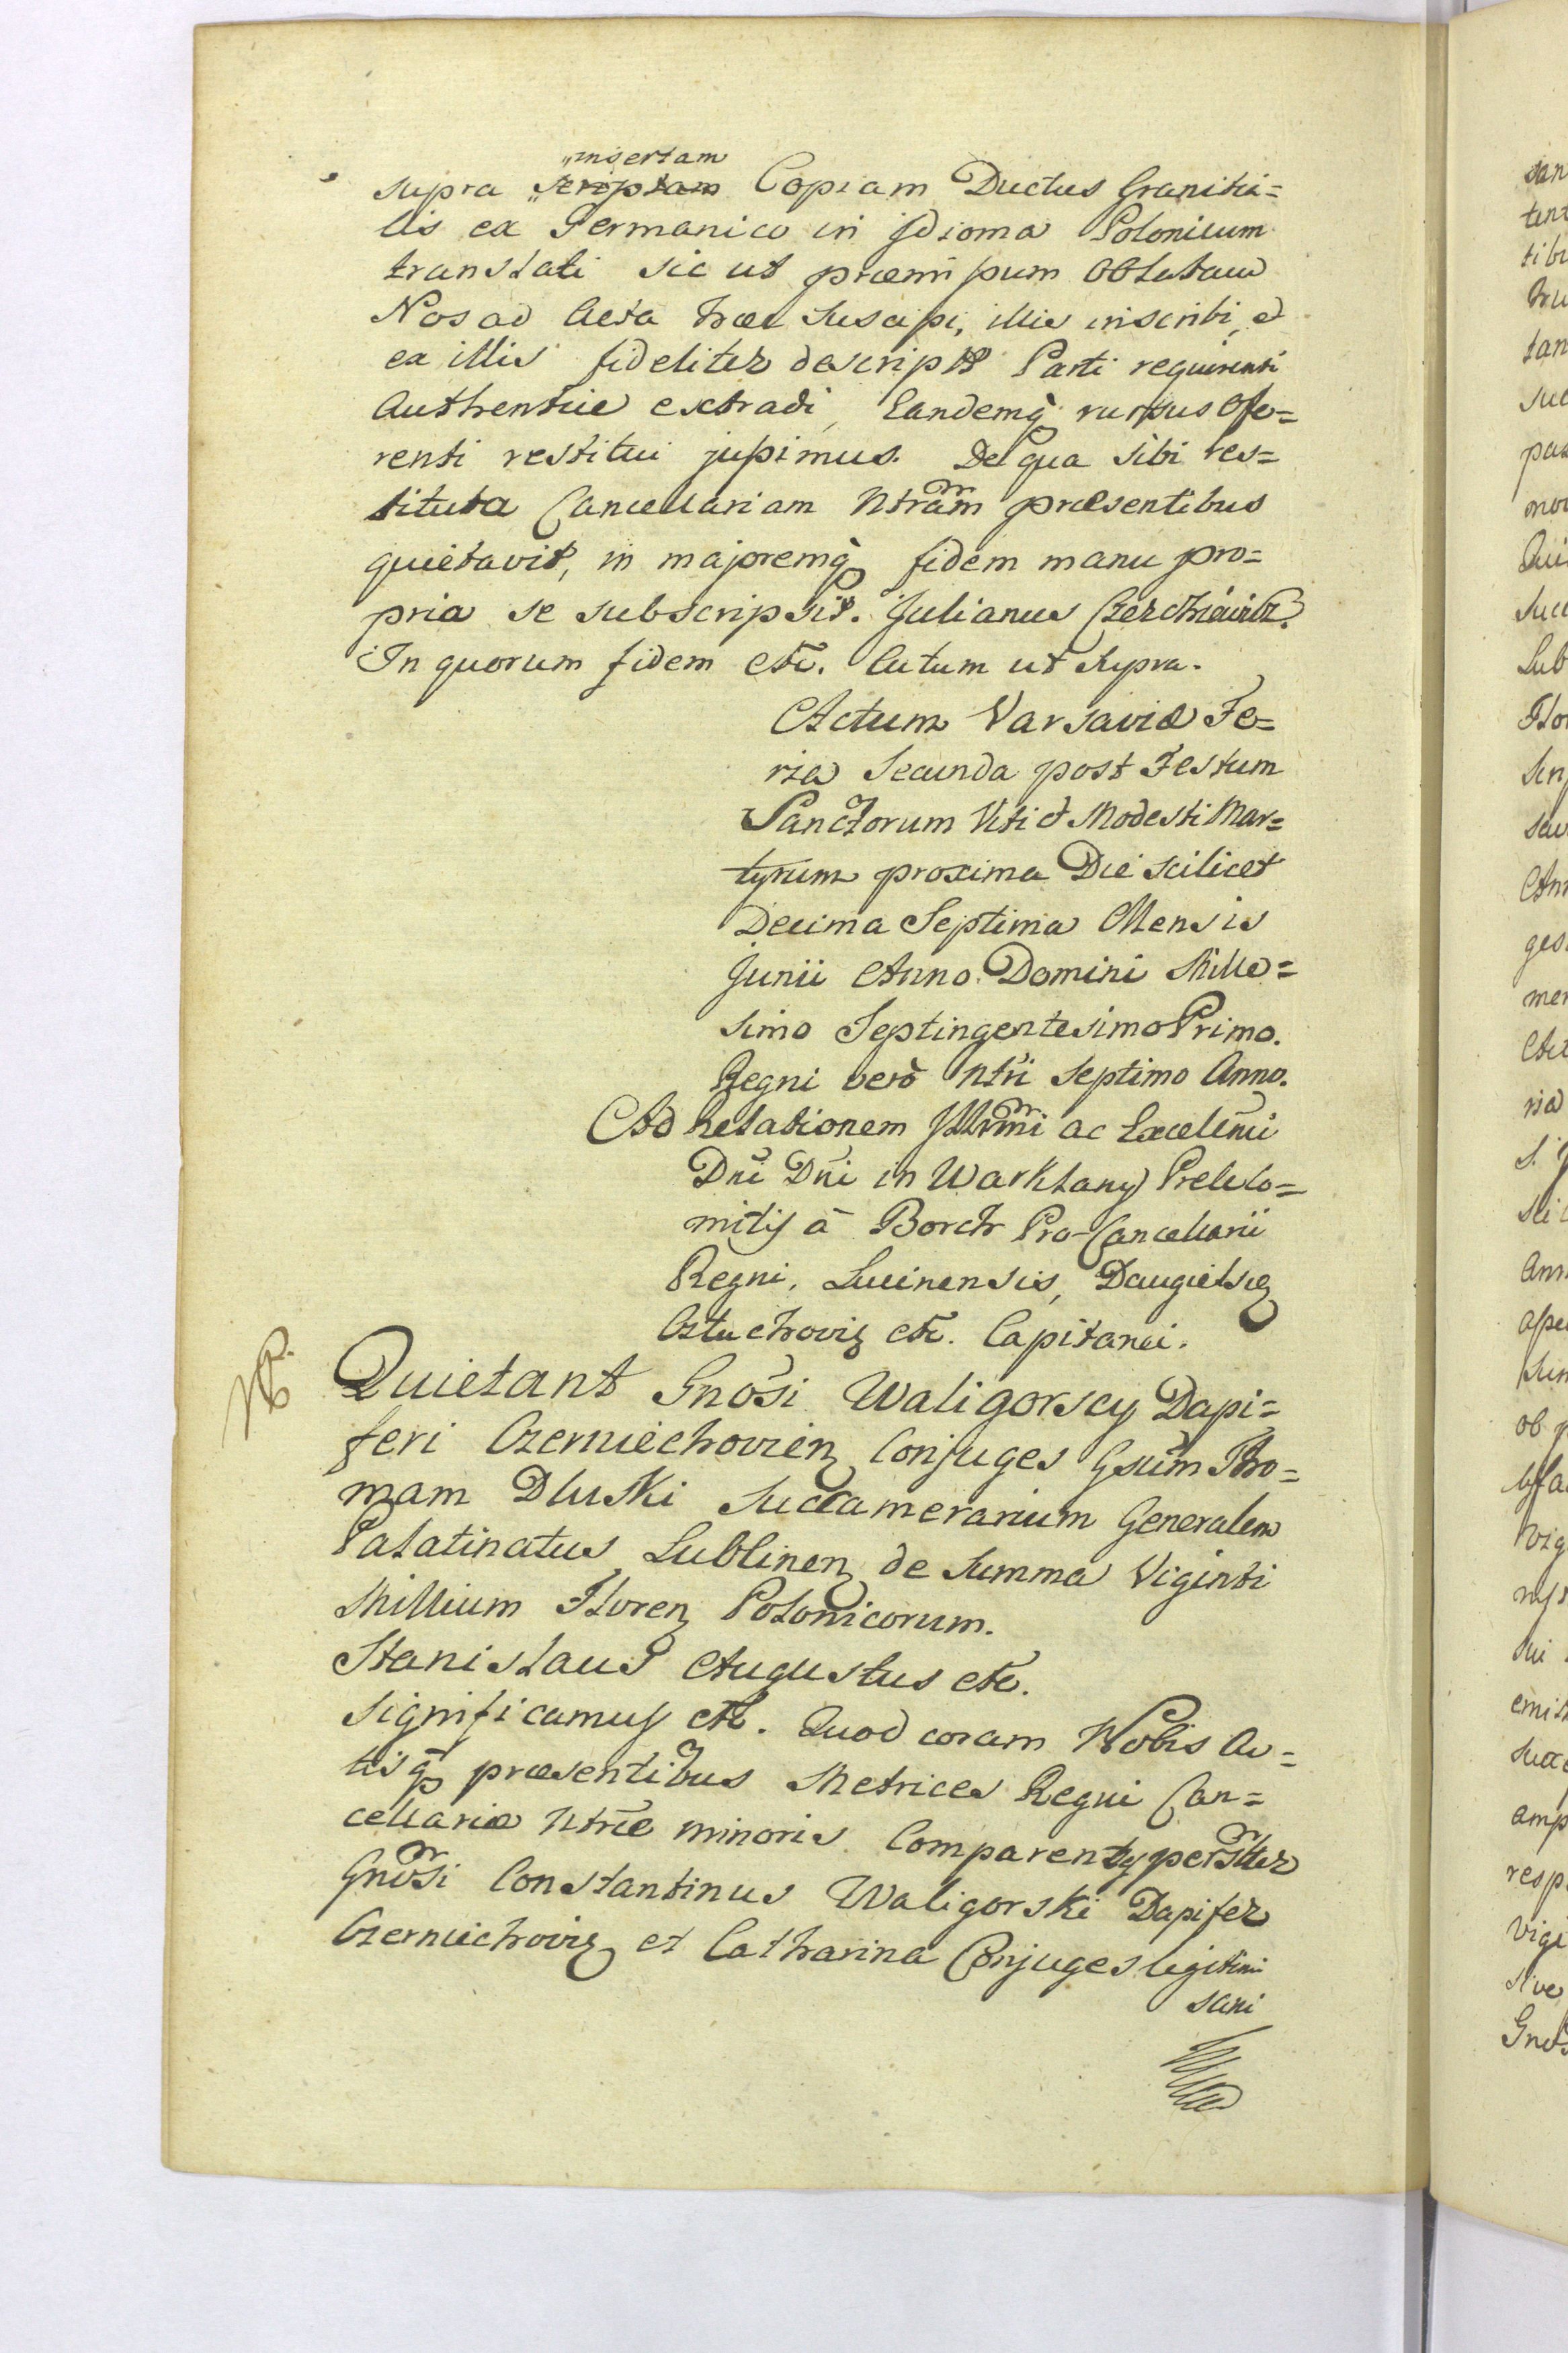 insertam
supra scriptam Copiam Ductus Granitia=
lis ex Germanico in Jdioma Polonicum
translati sic ut præmissum Oblatam
Nos ad Acta hæc suscipi, illis inscribi, et
ex illis fideliter descriptã Parti requirenti
Authentice extradi, Eandemq̃ rursus Offe=
renti restitui jussimus. De qua sibi res=
tituta Cancellariam Ntram præsentibus
quietavit, in majoremq̃ fidem manu pro=
pria se subscripsit. Julianus
In quorum fidem etc. Actum ut supra.
Actum Varsaviæ Fe=
ria Secunda post Festum
Sanctorum Viti et Modesti Mar=
tyrum proxima Die scilicet
Decima Septima Mensis
Junii Anno Domini Mille=
simo Septingentesimo Primo.
Regni verò Ntri Septimo Anno.
Ad Relationem Jllrmi ac Excellmi
Dni Dni in Warklany Prele Co=
mitis à Borch Pro-Cancellarii
Regni, Lucinensis,
etc. Capitanei.
NB.
Quietant Gnosi Waligorscy Dapi=
feri Czerniechovien Conjuges Gsum Tho=
mam Dluski Succamerarium Generalem
Palatinatus Lublinen de Summa Viginti
Millium Floren Polonicorum.
Stanislaus Augustus etc.
Significamus etc. Quod coram Nobis Ac=
tisq̃ præsentibus Metrices Regni Can=
cellariæ Ntræ minoris Comparentes personaliter
Gnosi Constantinus Waligorski Dapifer
Czerniechovien et Catharina Conjuges legitimi
sani